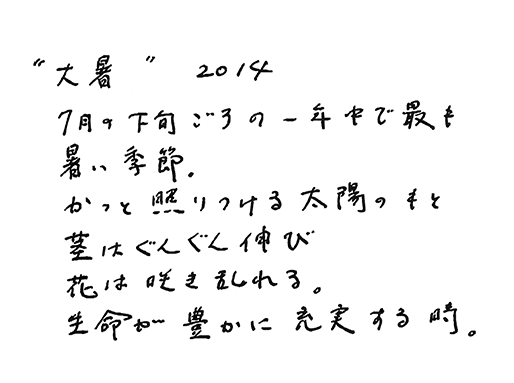 "大暑" 2014
7月の下旬ごろの一年中で最も
暑い季節.
かっと照りつける太陽のもと
茎はぐんぐん伸び
花は咲き乱れる。
生命が豊かに充実する時。